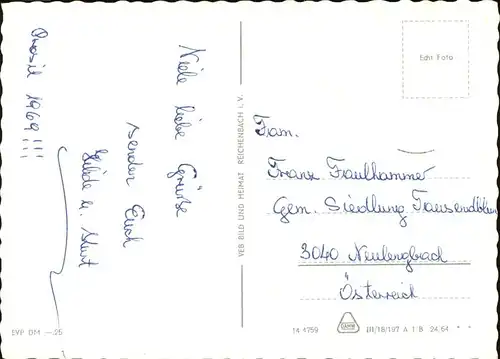 Prosit 1969!!!
Viele liebe Grüsse
senden Euch
u. Kurt
VEB BILD UND HEIMAT REICHENBACH i. V.
Echt Foto
Fam.
Franz Faulhammer
Gem. Siedlung Tausendblum
3040 Neulengbach
Österreich
EVP DM —.25
14 4759
III/18/197 A 1 B 24.64